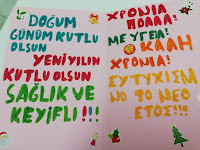 DOĞUM
GÜNÜM KUTLU
OLSUN
YENİ YILIN
KUTLU OLSUN
SAĞLIK VE
KEYİFLİ!!!
ΧΡΟΝΙΑ
ΠΟΛΛΑ!
ΜΕ ΥΓΕΙΑ!
ΚΑΛΗ
ΧΡΟΝΙΑ!
ΕΥΤΥΧΙΣΜ
ΝΟ ΤΟ ΝΕΟ
ΕΤΟΣ!!!